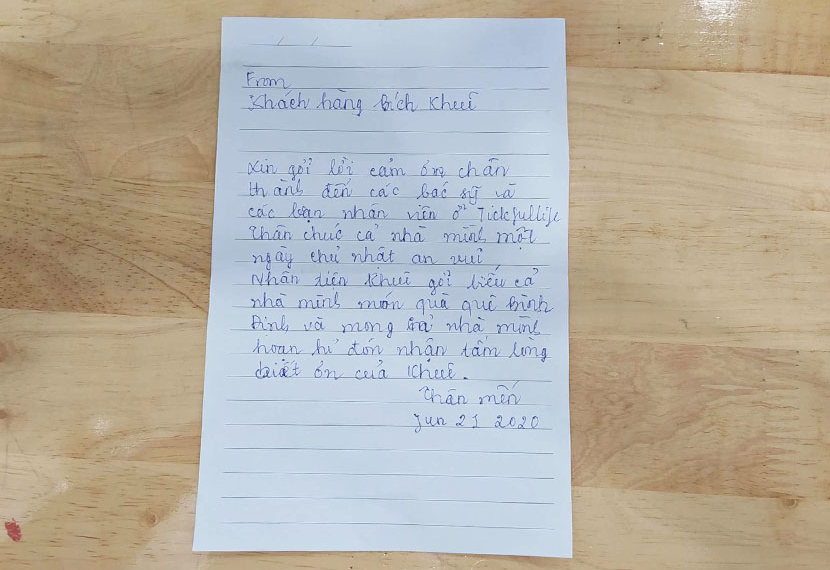 From
Khách hàng bích Khuê
Xin gởi lời cảm ơn chân
thành đến các bác sỹ và
các bạn nhân viên ở Tickfullife
Thân chúc cả nhà mình một
ngày chủ nhật an vui
Nhân tiện Khuê gởi biếu cả
nhà mình món quà quê bình
Định và mong cả nhà mình
hoan hỉ đón nhận tấm lòng
biết ơn của Khuê.
Thân mến
Jun 21 2020